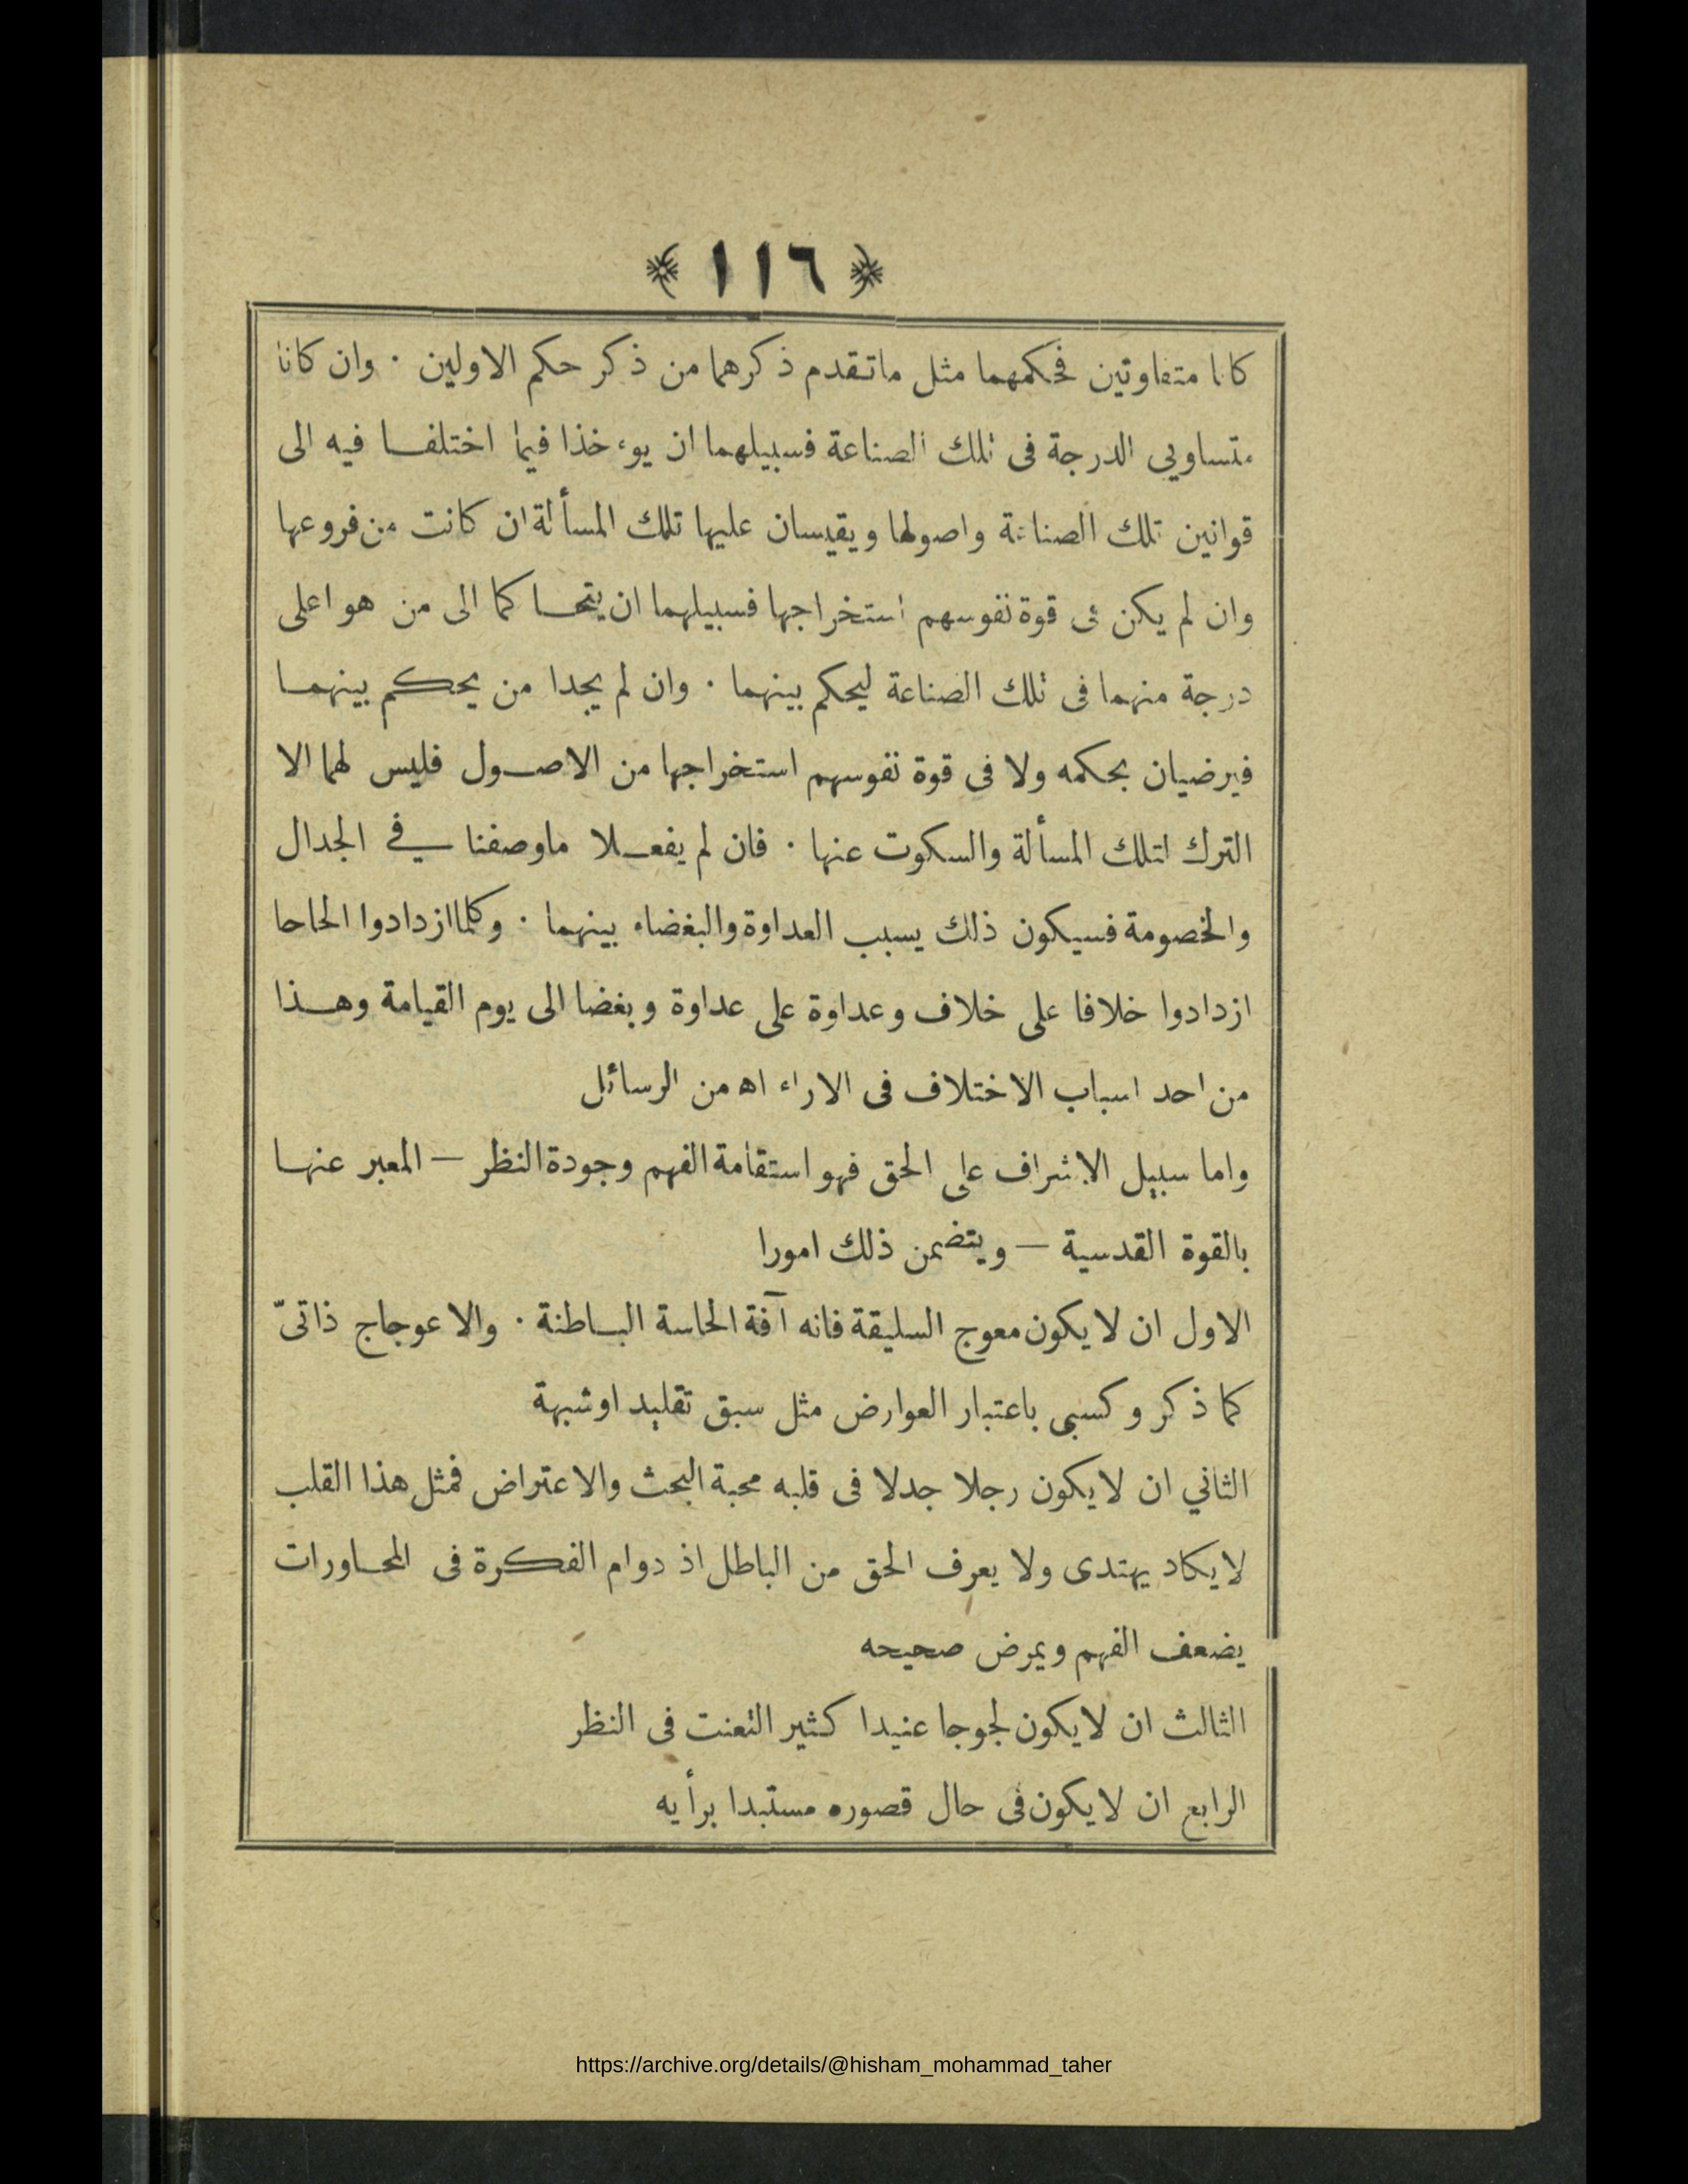 ﴿ ١١٦ ﴾
كانا متفاوتين فحكمهما مثل ماتقدم ذكرهما من ذكر حكم الاولين · وان كانا
متساويي الدرجة فى تلك الصناعة فسبيلهما ان يوءخذا فيما اختلفا فيه الى
قوانين تلك الصناعة واصولها ويقيسان عليها تلك المسألة ان كانت من فروعها
وان لم يكن فى قوة نفوسهم استخراجها فسبيلهما ان يتحاكما الى من هو اعلى
درجة منهما فى تلك الصناعة ليحكم بينهما · وان لم يجدا من يحكم بينهما
فيرضيان بحكمه ولا فى قوة نفوسهم استخراجها من الاصول فليس لهما الا
الترك لتلك المسألة والسكوت عنها · فان لم يفعلا ماوصفنا في الجدال
والخصومة فسيكون ذلك يسبب العداوة والبغضاء بينهما · وكلما ازدادوا الحاحا
ازدادوا خلافا على خلاف وعداوة على عداوة وبغضا الى يوم القيامة وهذا
من احد اسباب الاختلاف فى الاراء اه من الرسائل
واما سبيل الاشراف على الحق فهو استقامة الفهم وجودة النظر — المعبر عنها
بالقوة القدسية — ويتضمن ذلك امورا
الاول ان لايكون معوج السليقة فانه آفة الحاسة الباطنة · والاعوجاج ذاتىّ
كما ذكر وكسبى باعتبار العوارض مثل سبق تقليد اوشبهة
الثاني ان لايكون رجلا جدلا فى قلبه محبة البحث والاعتراض فمثل هذا القلب
لايكاد يهتدى ولا يعرف الحق من الباطل اذ دوام الفكرة فى المحاورات
يضعف الفهم ويمرض صحيحه
الثالث ان لايكون لجوجا عنيدا كثير التعنت فى النظر
الرابع ان لايكون فى حال قصوره مستبدا برأيه
https://archive.org/details/@hisham_mohammad_taher